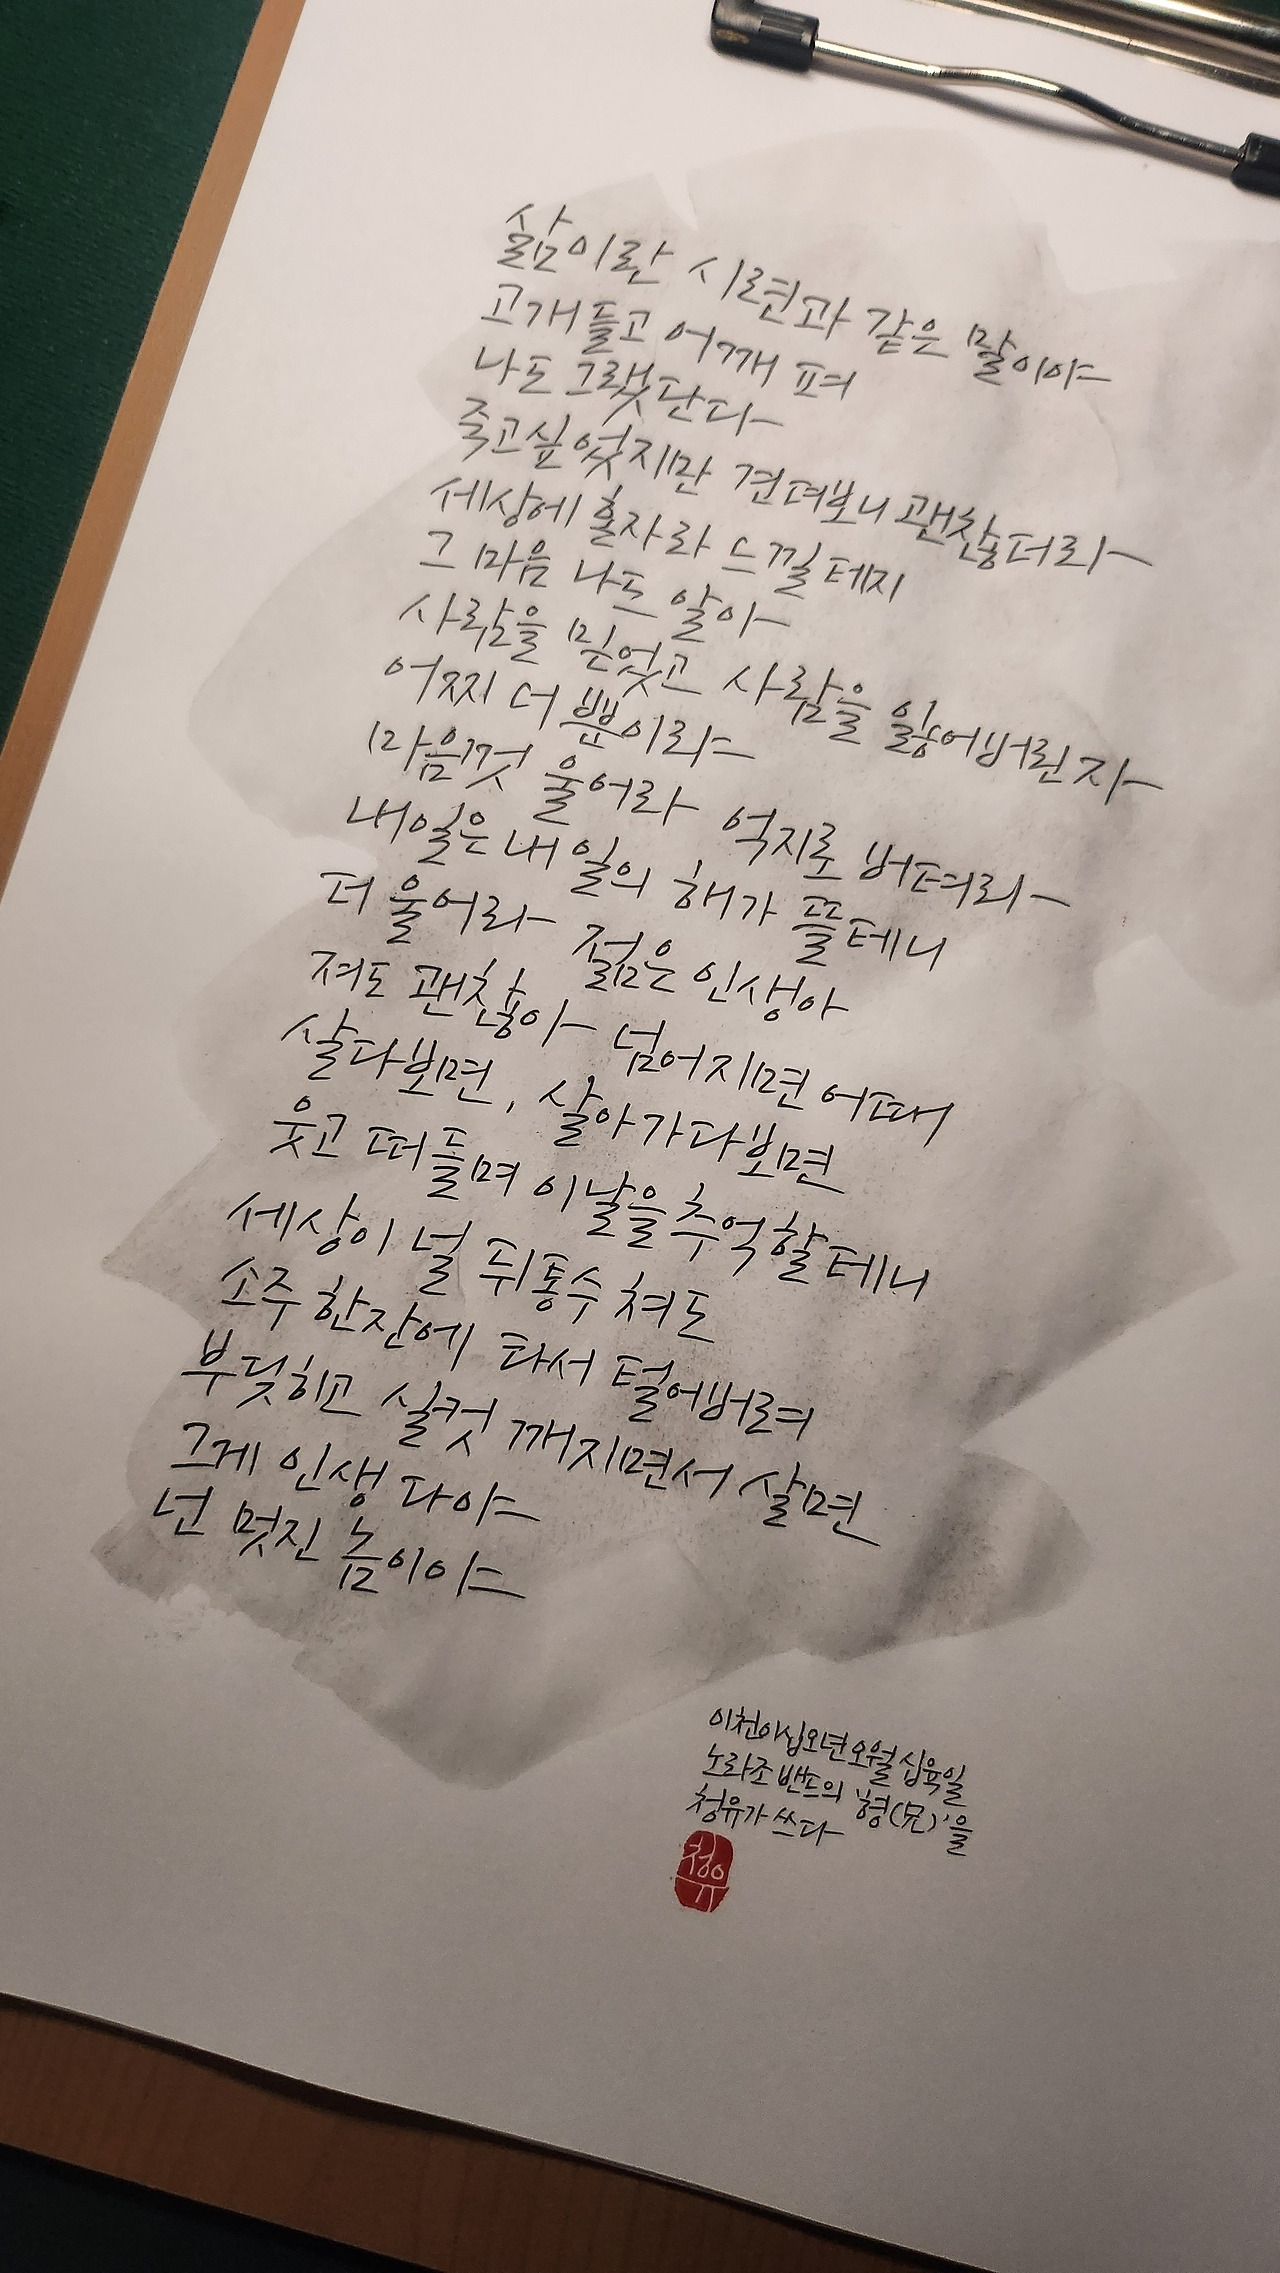 삶이란 시련과 같은 말이야
고개 들고 어깨 펴
나도 그랬단다
죽고싶었지만 견뎌보니 괜찮더라
세상에 혼자라 느낄테지
그 마음 나도 알아
사람을 믿었고 사람을 잃어버린 자
어찌 너 뿐이랴
마음껏 울어라 억지로 버텨라
내일은 내일의 해가 뜰테니
더 울어라 젊은 인생아
져도 괜찮아 넘어지면 어때
살다보면, 살아가다보면
웃고 떠들며 이날을 추억할테니
세상이 널 뒤통수 쳐도
소주 한잔에 타서 털어버려
부딪히고 실컷 깨지면서 살면
그게 인생 다야
넌 멋진 놈이야
이천이십오년 오월 십육일
노라조 밴드의 '형(兄)'을
청유가 쓰다
청유